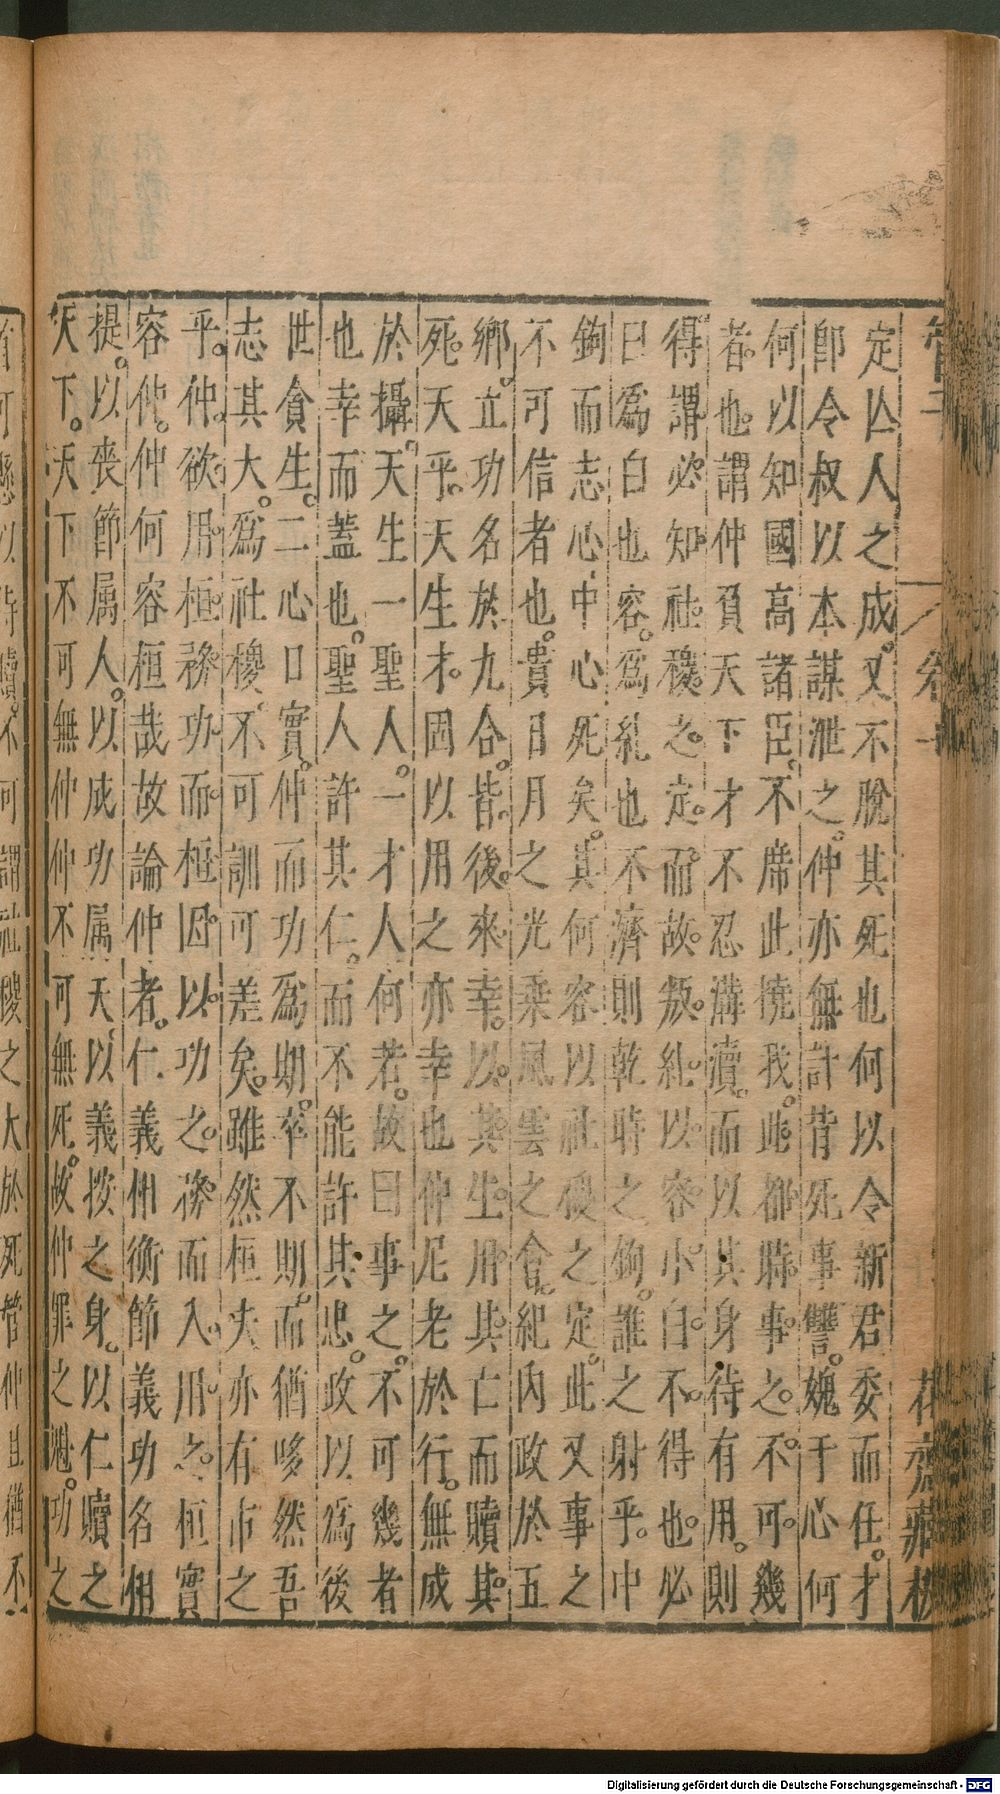 管子 卷十 花齋藏板
定亾人之成又不脫其死也何以令新君委而任才
卽令叔以本謀泄之仲亦無計背死事讐媿于心何
何以知國高諸臣不席此撓我此都時事之不可幾
者也謂仲負天下才不忍溝瀆而以其身待有用則
得謂必知社稷之定而故叛糺以容小白不得也必
曰爲白也容爲糺也不濟則乾時之鉤誰之射乎中
鉤而志心中心死矣其何容以社稷之定此又事之
不可信者也貴日月之光乘風雲之會紀內政於五
鄉立功名於九合皆後來幸以其生用其亡而贖其
死天乎天生才固以用之亦幸也仲尼老於行無成
於攝天生一聖人一才人何若故曰事之不可幾者
也幸而蓋也聖人許其仁而不能許其忠政以爲後
世貪生二心口實仲而功爲期卒不期而猶哆然吾
志其大爲社稷不可訓可差矣雖然桓夫亦有市之
乎仲欲用桓務功而桓因以功之務而入用之桓實
容仲仲何容桓哉故論仲者仁義相衡節義功名相
提以喪節属人以成功属天以義按之身以仁贖之
天下天下不可無仲仲不可無死故仲罪之魁功之
首可懸以待贖不可謂社稷之大於死管仲且猶不
Digitalisierung gefördert durch die Deutsche Forschungsgemeinschaft - DFG